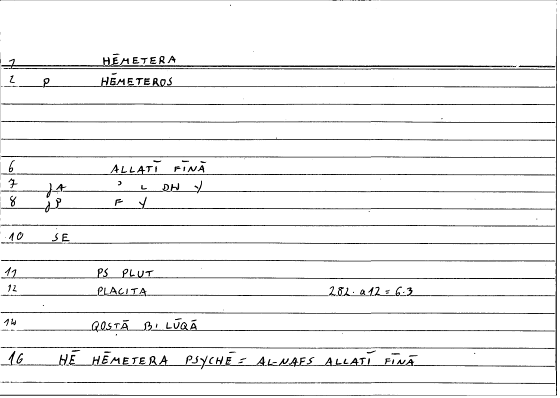 1 HĒMETERA
2 P HĒMETEROS
6 ALLATĪ FĪNĀ
7 JA ' L DH Y
8 JP F Y
10 SE
11 PS PLUT
12 PLACITA 282. a12 = 6.3
14 QOSTĀ BI LŪQĀ
16 HĒ HĒMETERA PSYCHĒ = AL-NAFS ALLATĪ FĪNĀ